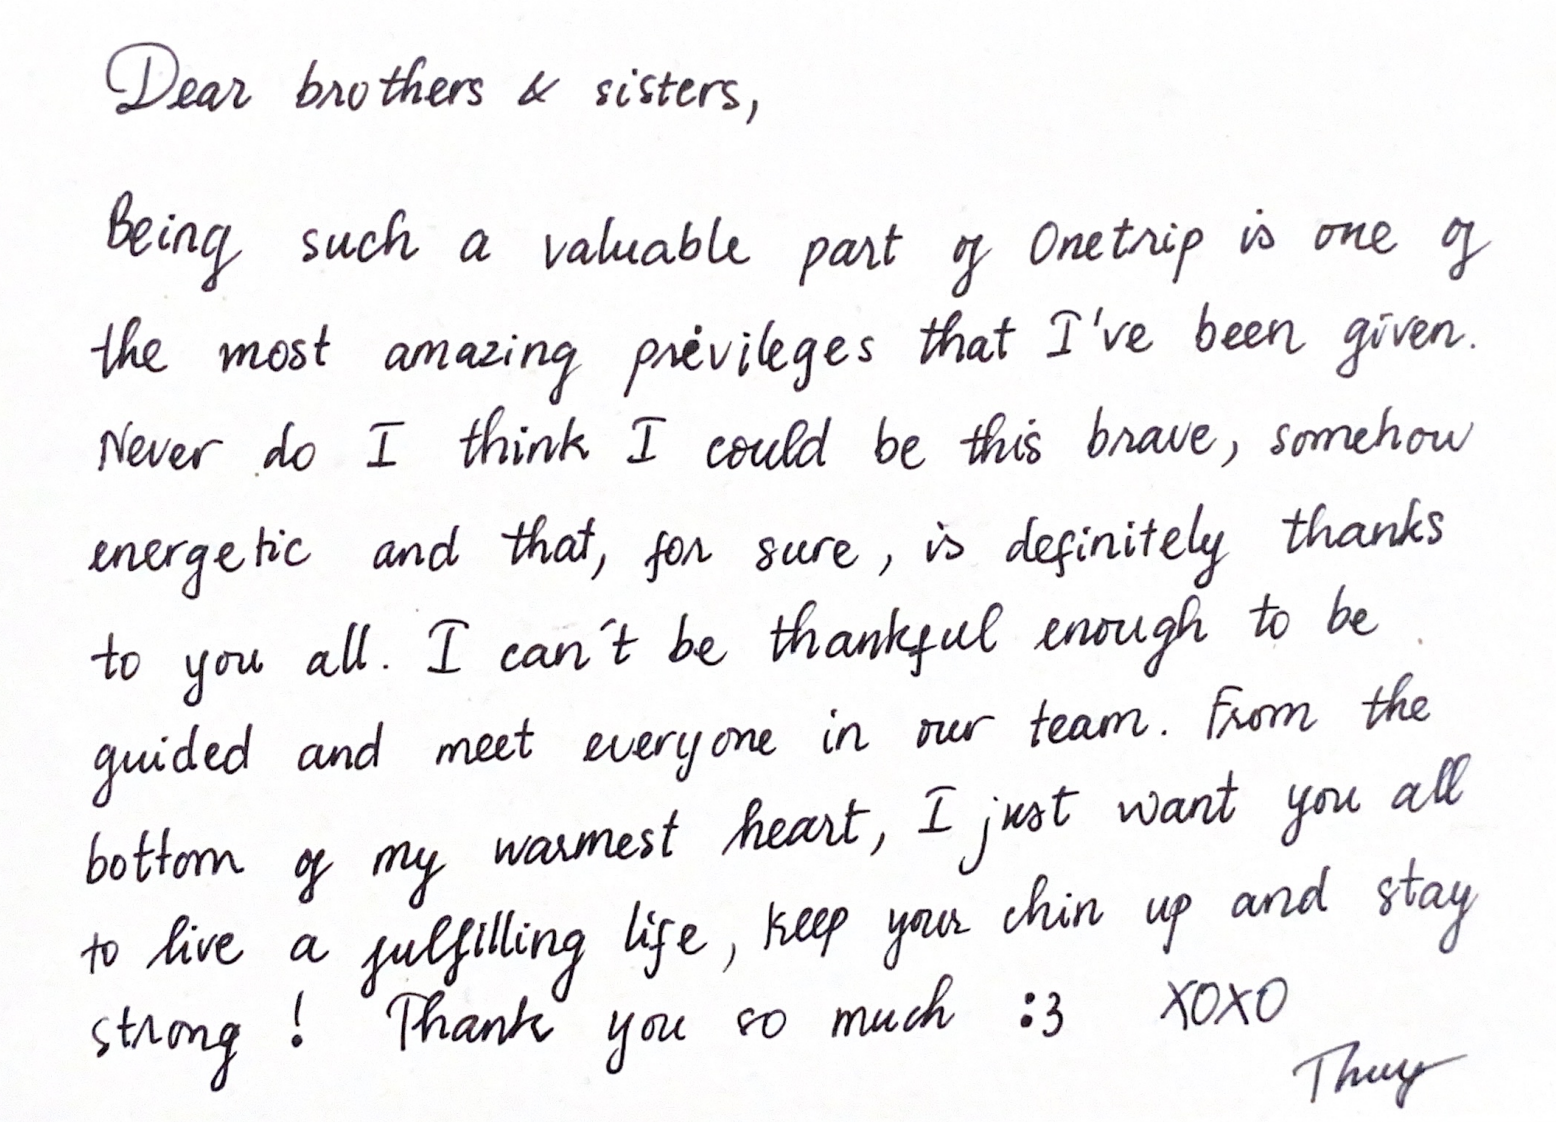 Dear brothers & sisters,
Being such a valuable part of Onetrip is one of
the most amazing privileges that I've been given.
Never do I think I could be this brave, somehow
energetic and that, for sure, is definitely thanks
to you all. I can't be thankful enough to be
guided and meet everyone in our team. From the
bottom of my warmest heart, I just want you all
to live a fulfilling life, keep your chin up and stay
strong! Thank you so much :3 XOXO
Thuy